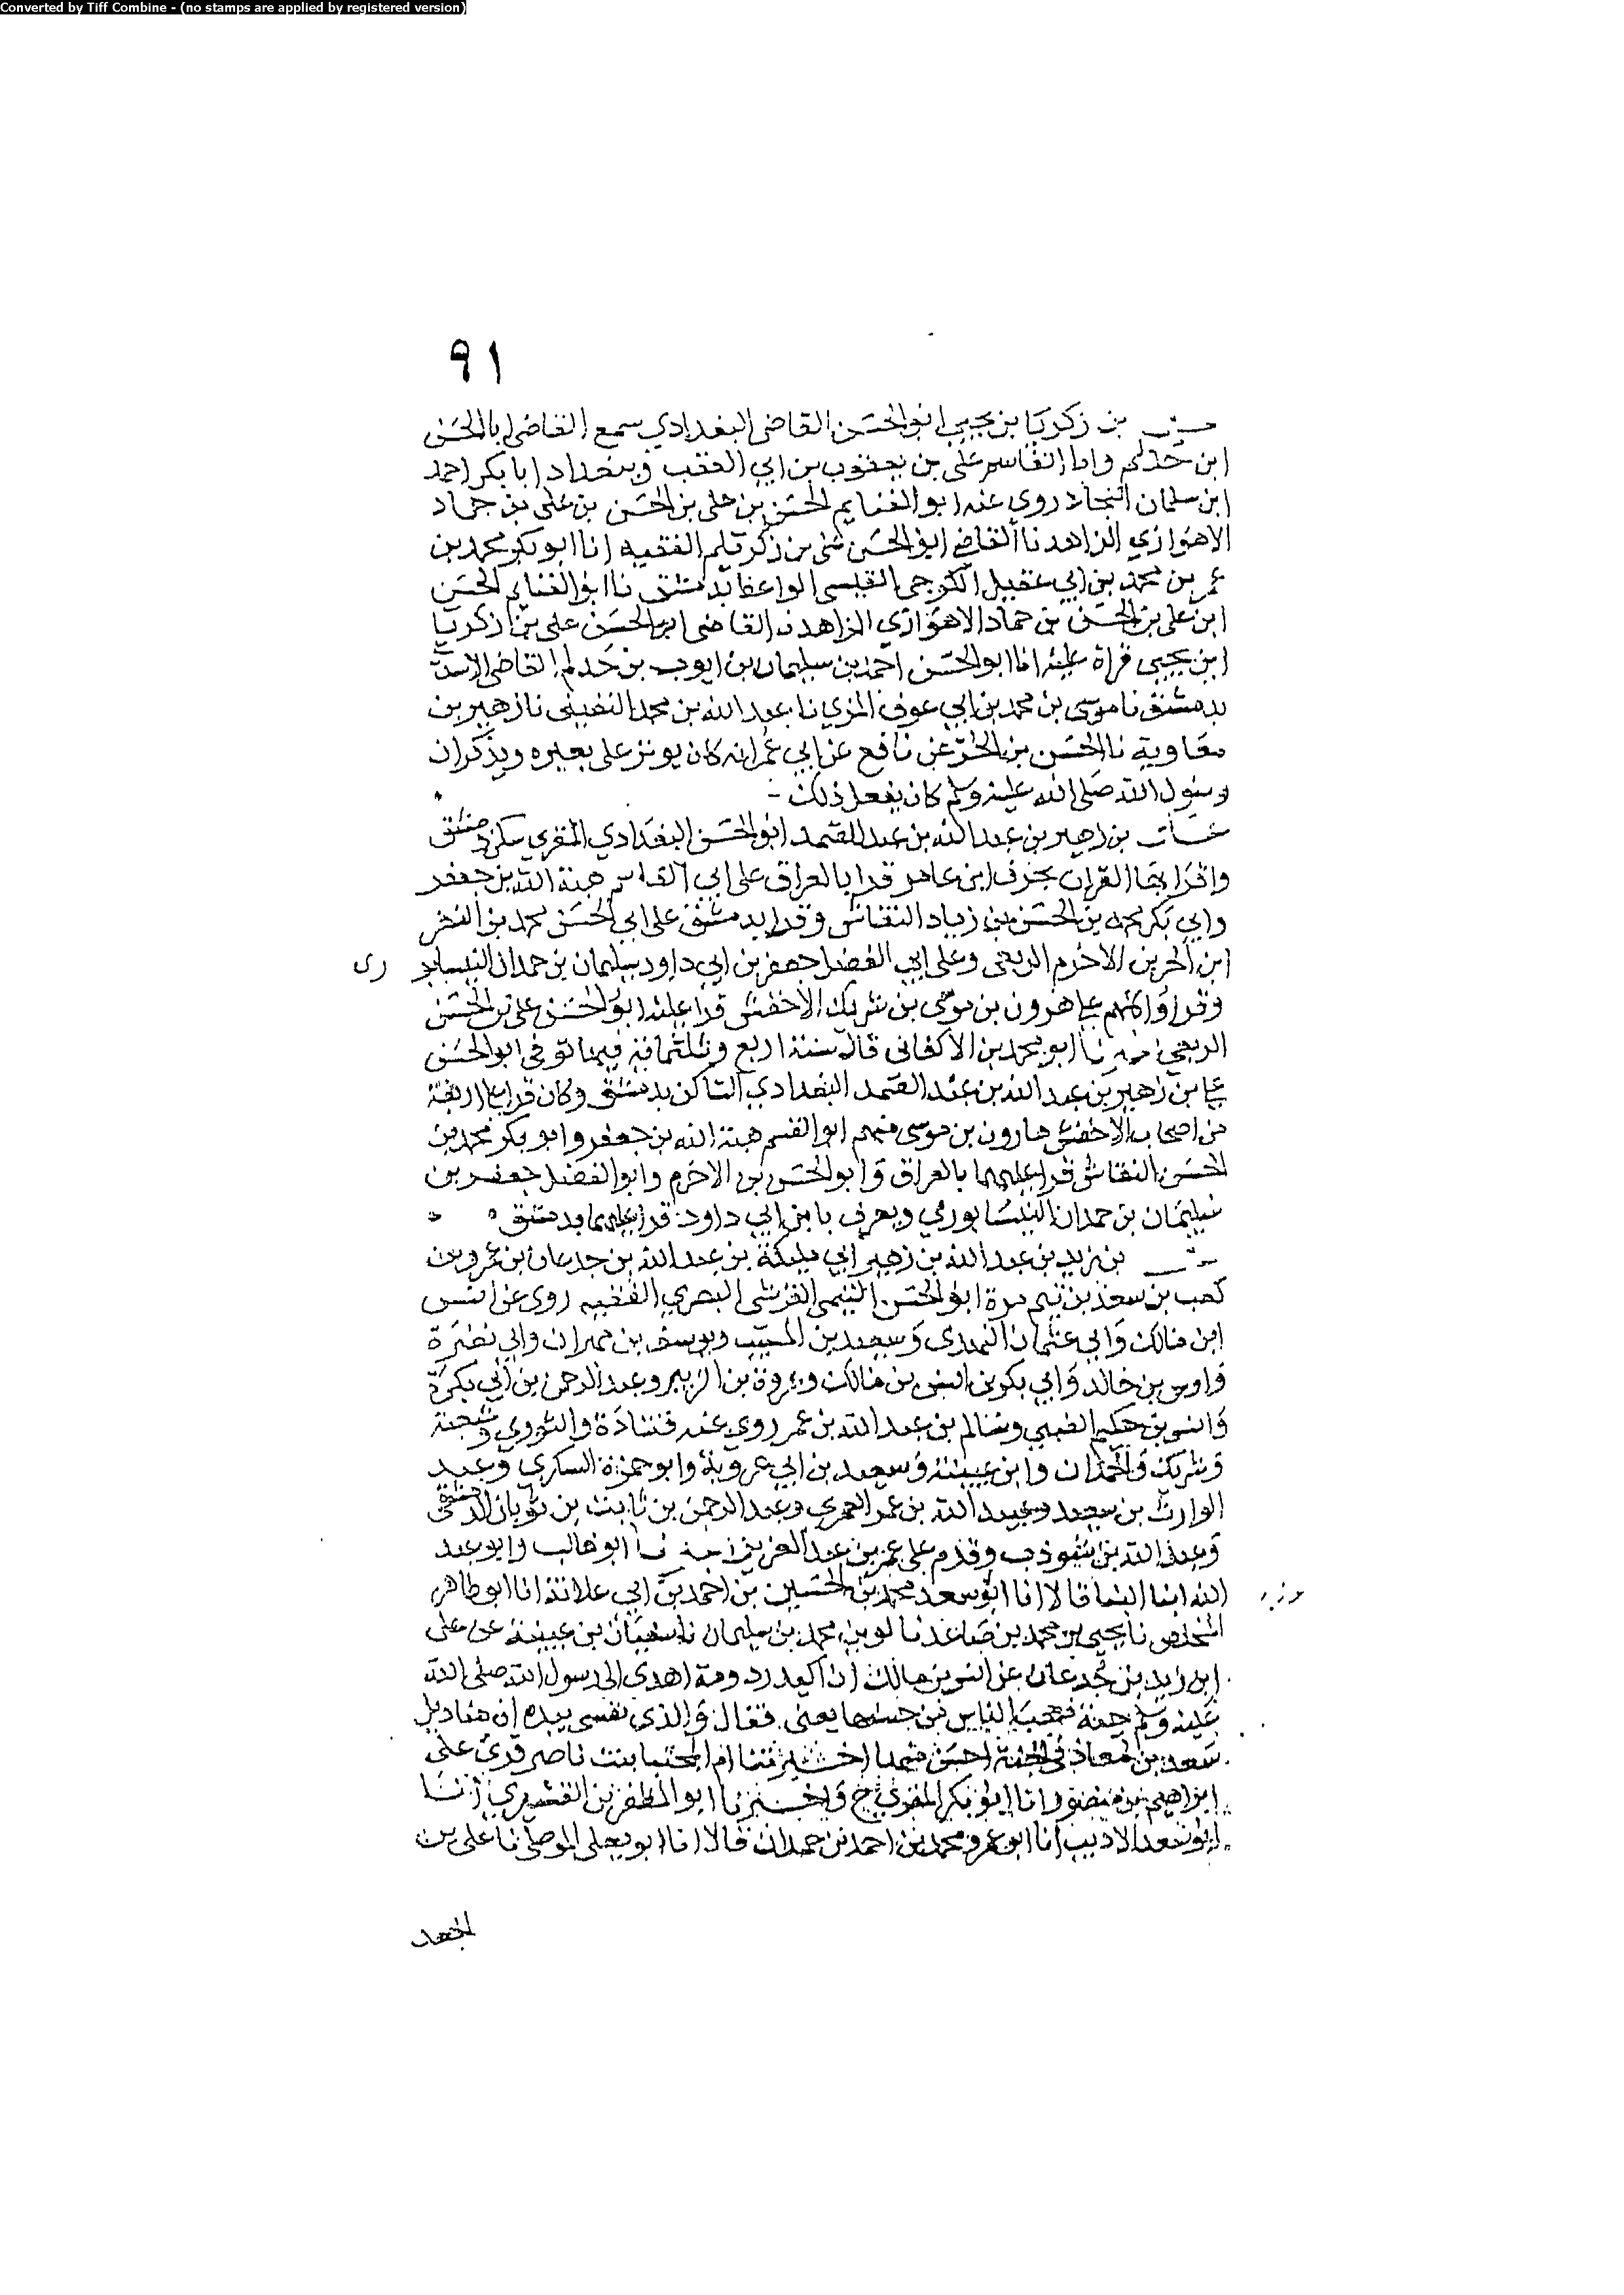 Converted by Tiff Combine - (no stamps are applied by registered version)
٩١
بن زكريا بن يحيى ابو الحسن القاضي البغدادي سمع القاضي ابا الحسن
ابن حذلم وابا القاسم علي بن يعقوب بن ابي العقب وببغداد ابا بكر احمد
ابن سلمان النجاد روى عنه ابو الغنايم الحسن بن علي بن الحسن بن علي بن حماد
الاهوازي الزاهد نا القاضي ابو الحسن بن زكر الفقيه انا ابو بكر محمد بن
عمر بن محمد بن ابي عقيل الكرجي الواعظ بدمشق نا ابو الغنايم الحسن
ابن علي بن الحسن بن حماد الاهوازي الزاهد نا القاضي ابو الحسن علي بن زكريا
ابن يحيى قراة عليه انا ابو الحسن احمد بن سليمان بن ايوب بن حذلم القاضي الاسدي
بدمشق نا موسى بن محمد بن ابي عوف المزي نا عبد الله بن محمد النفيلي نا زهير بن
معاوية نا الحسن بن الحر عن نافع عن ابي عمر انه كان يوتر على بعيره ويذكر ان
رسول الله صلى الله عليه وسلم كان يفعل ذلك
بن زهير بن عبد الله بن عبد الصمد ابو الحسن البغدادي المقري سكن دمشق
واقرا بها القران بحرف ابن عامر قرا بالعراق على ابي القاسم هبة الله بن جعفر
وابي بكر محمد بن الحسن بن زياد النقاش وقرا بدمشق على ابي الحسن محمد بن النضر
ابن الحر بن الاخرم الربعي وعلى ابي الفضل جعفر بن ابي داود سليمان بن حمدان النيسابو ري
وقراوا كلهم على هرون بن موسى بن شريك الاخفش قرا عليه ابو الحسن علي بن الحسن
الربعي نا ابو محمد بن الاكفاني قال سنة اربع وثلثماية فيها توفي ابو الحسن
علي بن زهير بن عبد الله بن عبد الصمد البغدادي الساكن بدمشق وكان قرا على اربعة
من اصحاب الاخفش هارون بن موسى منهم ابو القسم هبة الله بن جعفر وابو بكر محمد بن
الحسن النقاش قرا عليهما بالعراق وابو الحسن بن الاخرم وابو الفضل جعفر بن
سليمان بن حمدان النيسابوري ويعرف بابن ابي داود قرا عليهما بدمشق
بن زيد بن عبد الله بن زهير ابي مليكة بن عبد الله بن جدعان بن عمرو بن
كعب بن سعد بن تيم بن مرة ابو الحسن التيمي القرشي البصري الفقيه روى عن انس
ابن مالك وابي عثمان النهدي وسعيد بن المسيب ويوسف بن مهران وابي نضرة
واوس بن خالد وابي بكر بن انس بن مالك وعروة بن الزبير وعبد الرحمن بن ابي بكرة
وانس بن حكيم الضبي وسالم بن عبد الله بن عمر روى عنه قتادة والثوري وشعبة
وشريك والحمادان وابن عيينة وسعيد بن ابي عروبة وابو حمزة السكري وعبد
الوارث بن سعيد وعبيد الله بن عمر العمري وعبد الرحمن بن ثابت بن ثوبان الدمشقي
وعبد الله بن شوذب وقدم على عمر بن عبد العزيز نا ابو غالب وابو عبد
الله ابنا البنا قالا انا ابو سعد محمد بن الحسين بن احمد بن ابي علانة انا ابو طاهر
المخلص نا يحيى بن محمد بن صاعد نا لوين محمد بن سليمان نا سفيان بن عيينة عن علي
ابن زيد بن جدعان عن انس بن مالك ان اكيدر دومة اهدى الى رسول الله صلى الله
عليه وسلم جبة فعجب الناس من حسنها يعني فقال والذي نفسي بيده ان مناديل
سعد بن معاذ في الجنة احسن منها اخبرتنا ام المجتبا بنت ناصر قرئ على
ابراهيم بن منصور انا ابو بكر المقري ح واخبرنا ابو المظفر بن القشيري انا
ابو سعد الاديب انا ابو عمرو محمد بن احمد بن حمدان قالا انا ابو يعلى الموصلي نا علي بن
الجعد